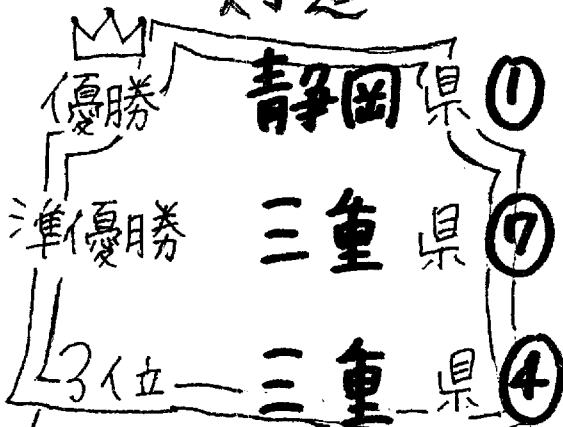 優勝 静岡県 ①
準優勝 三重県 ⑦
3位 三重県 ④